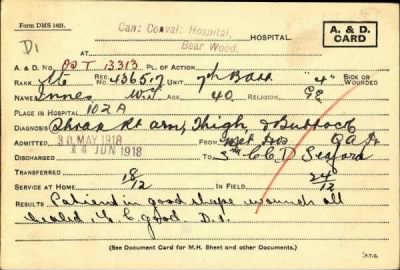 Form DMS 1401.
Can: Conval: Hospital, HOSPITAL.
A. & D. CARD
D1
AT Bear Wood.
A. & D. No. 13313 PL. OF ACTION
RANK Pte REG. NO. 436517 UNIT 7th Batt "4" SICK OR WOUNDED
NAME Innes W. AGE 40 RELIGION CE
PLACE IN HOSPITAL 102A
DIAGNOSIS Shrap Rt arm, Thigh, & Buttock
ADMITTED 30 MAY 1918 FROM Hos
DISCHARGED 14 JUN 1918 TO 5th C C D Seaford
TRANSFERRED
SERVICE AT HOME 18/12 IN FIELD 24/12
RESULTS Patient in good shape wounds all
healed, G. C good. D.1.
(See Document Card for M.H. Sheet and other Documents.)
P.T.O.